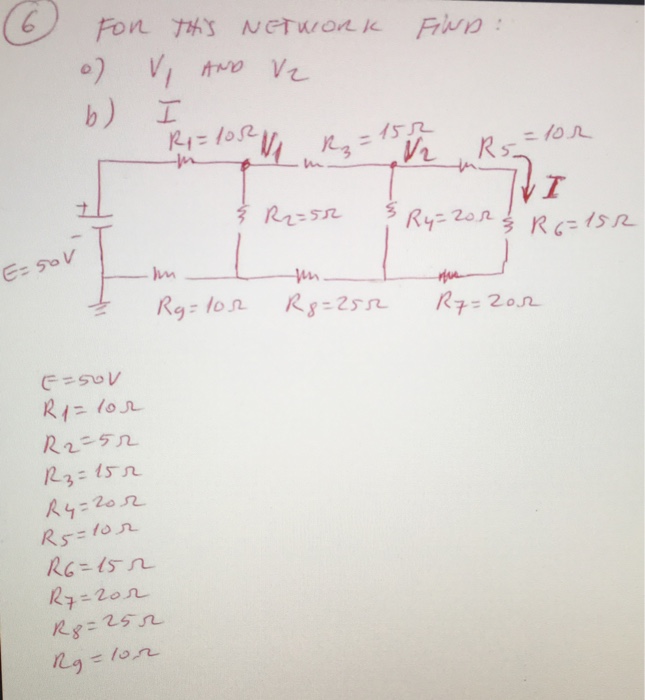 6 FOR THIS NETWORK FIND:
a) V1 AND V2
b) I
R1=10Ω V1 R3=15Ω V2 R5=10Ω
I
+ R2=5Ω R4=20Ω R6=15Ω
-
E=50V
R9=10Ω R8=25Ω R7=20Ω
E=50V
R1=10Ω
R2=5Ω
R3=15Ω
R4=20Ω
R5=10Ω
R6=15Ω
R7=20Ω
R8=25Ω
R9=10Ω